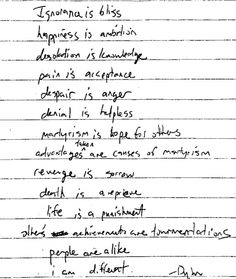 Ignorance is bliss
happiness is ambition
desolation is knowledge
pain is acceptance
despair is anger
denial is helpless
martyrism is hope for others
taken
advantages are causes of martyrism
revenge is sorrow
death is a reprieve
life is a punishment
others achievements are tourmentations
people are alike
i am different -Dylan